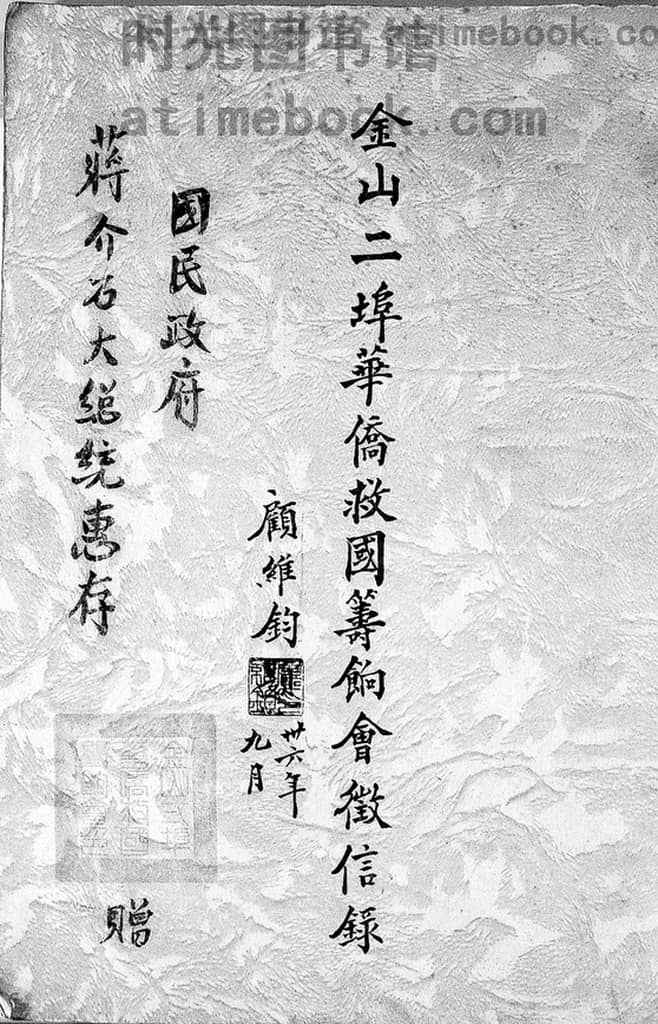 时光图书馆 atimebook.com
时光图书馆
atimebook.com
金山二埠華僑救國籌餉會徵信錄
顧維鈞
卅六年
九月
國民政府
蔣介石大總統惠存
贈